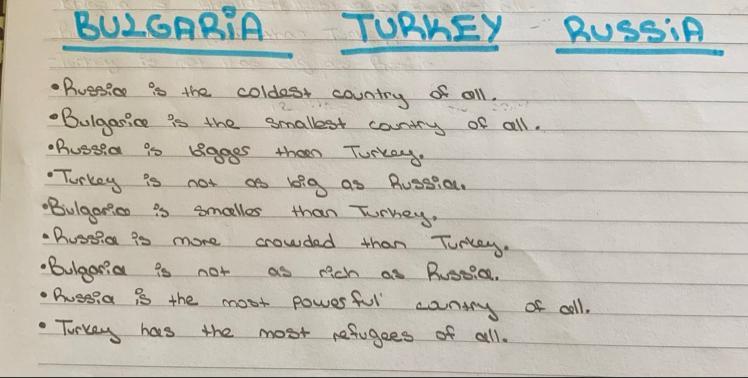 BULGARiA TURKEY RUSSiA
•Russia is the coldest country of all.
•Bulgaria is the smallest country of all.
•Russia is bigger than Turkey.
•Turkey is not as big as Russia.
•Bulgaria is smaller than Turkey.
•Russia is more crowded than Turkey.
•Bulgaria is not as rich as Russia.
•Russia is the most powerful country of all.
• Turkey has the most refugees of all.